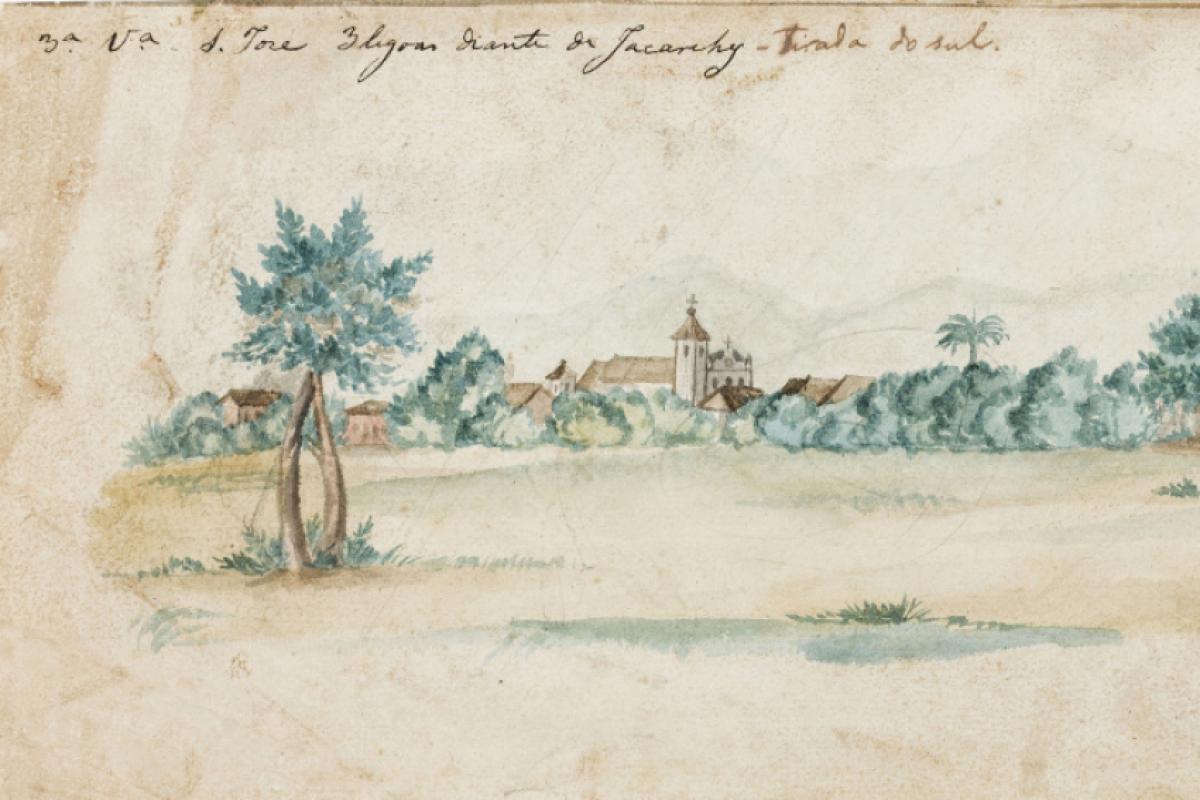 3ª Vª S. Joze 3 legoas diante de Jacarehy - tirada do sul.